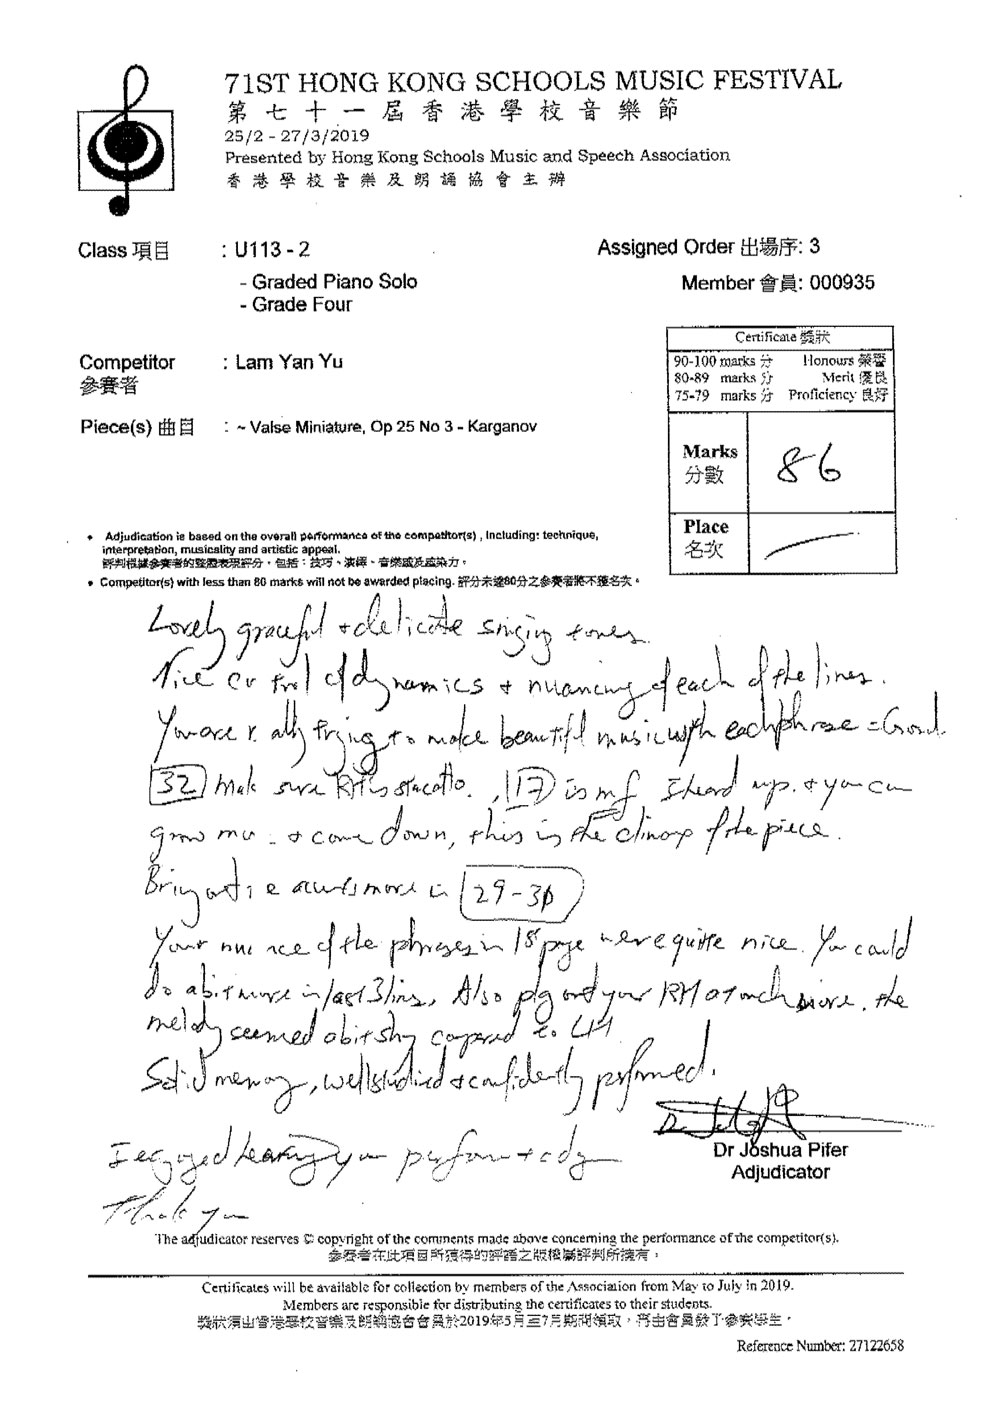 71ST HONG KONG SCHOOLS MUSIC FESTIVAL
第七十一屆香港學校音樂節
25/2 - 27/3/2019
Presented by Hong Kong Schools Music and Speech Association
香港學校音樂及朗誦協會主辦
Class 項目 : U113 - 2
- Graded Piano Solo
- Grade Four
Assigned Order 出場序: 3
Member 會員: 000935
Competitor : Lam Yan Yu
參賽者
Piece(s) 曲目 : ~ Valse Miniature, Op 25 No 3 - Karganov
Certificate 獎狀
90-100 marks 分 Honours 榮譽
80-89 marks 分 Merit 優良
75-79 marks 分 Proficiency 良好
Marks 86
分數
Place
名次
• Adjudication is based on the overall performance of the competitor(s) , including: technique,
interpretation, musicality and artistic appeal.
評判根據參賽者的整體表現評分，包括：技巧、演繹、音樂感及感染力。
• Competitor(s) with less than 80 marks will not be awarded placing. 評分未達80分之參賽者將不獲名次。
Lovely graceful + delicate singing tones.
Nice control of dynamics + nuancing of each of the lines.
You are really trying to make beautiful music with each phrase = Good
32 Make sure RH is staccato. , 17 is mf I heard mp. + you can
grow more + come down, this is the climax of the piece.
Bring out the accents more in 29-30
Your nuance of the phrases in 1st page were quite nice. You could
do a bit more in last 3 lines, Also play out your RH a touch more, the
melody seemed a bit shy compared to LH
Solid memory, well studied + confidently performed.
I enjoyed hearing your perform today
Thank you
Dr Joshua Pifer
Adjudicator
The adjudicator reserves © copyright of the comments made above concerning the performance of the competitor(s).
參賽者在此項目所獲得的評語之版權屬評判所擁有。
Certificates will be available for collection by members of the Association from May to July in 2019.
Members are responsible for distributing the certificates to their students.
獎狀須由香港學校音樂及朗誦協會會員於2019年5月至7月期間領取，再由會員發予參賽學生。
Reference Number: 27122658